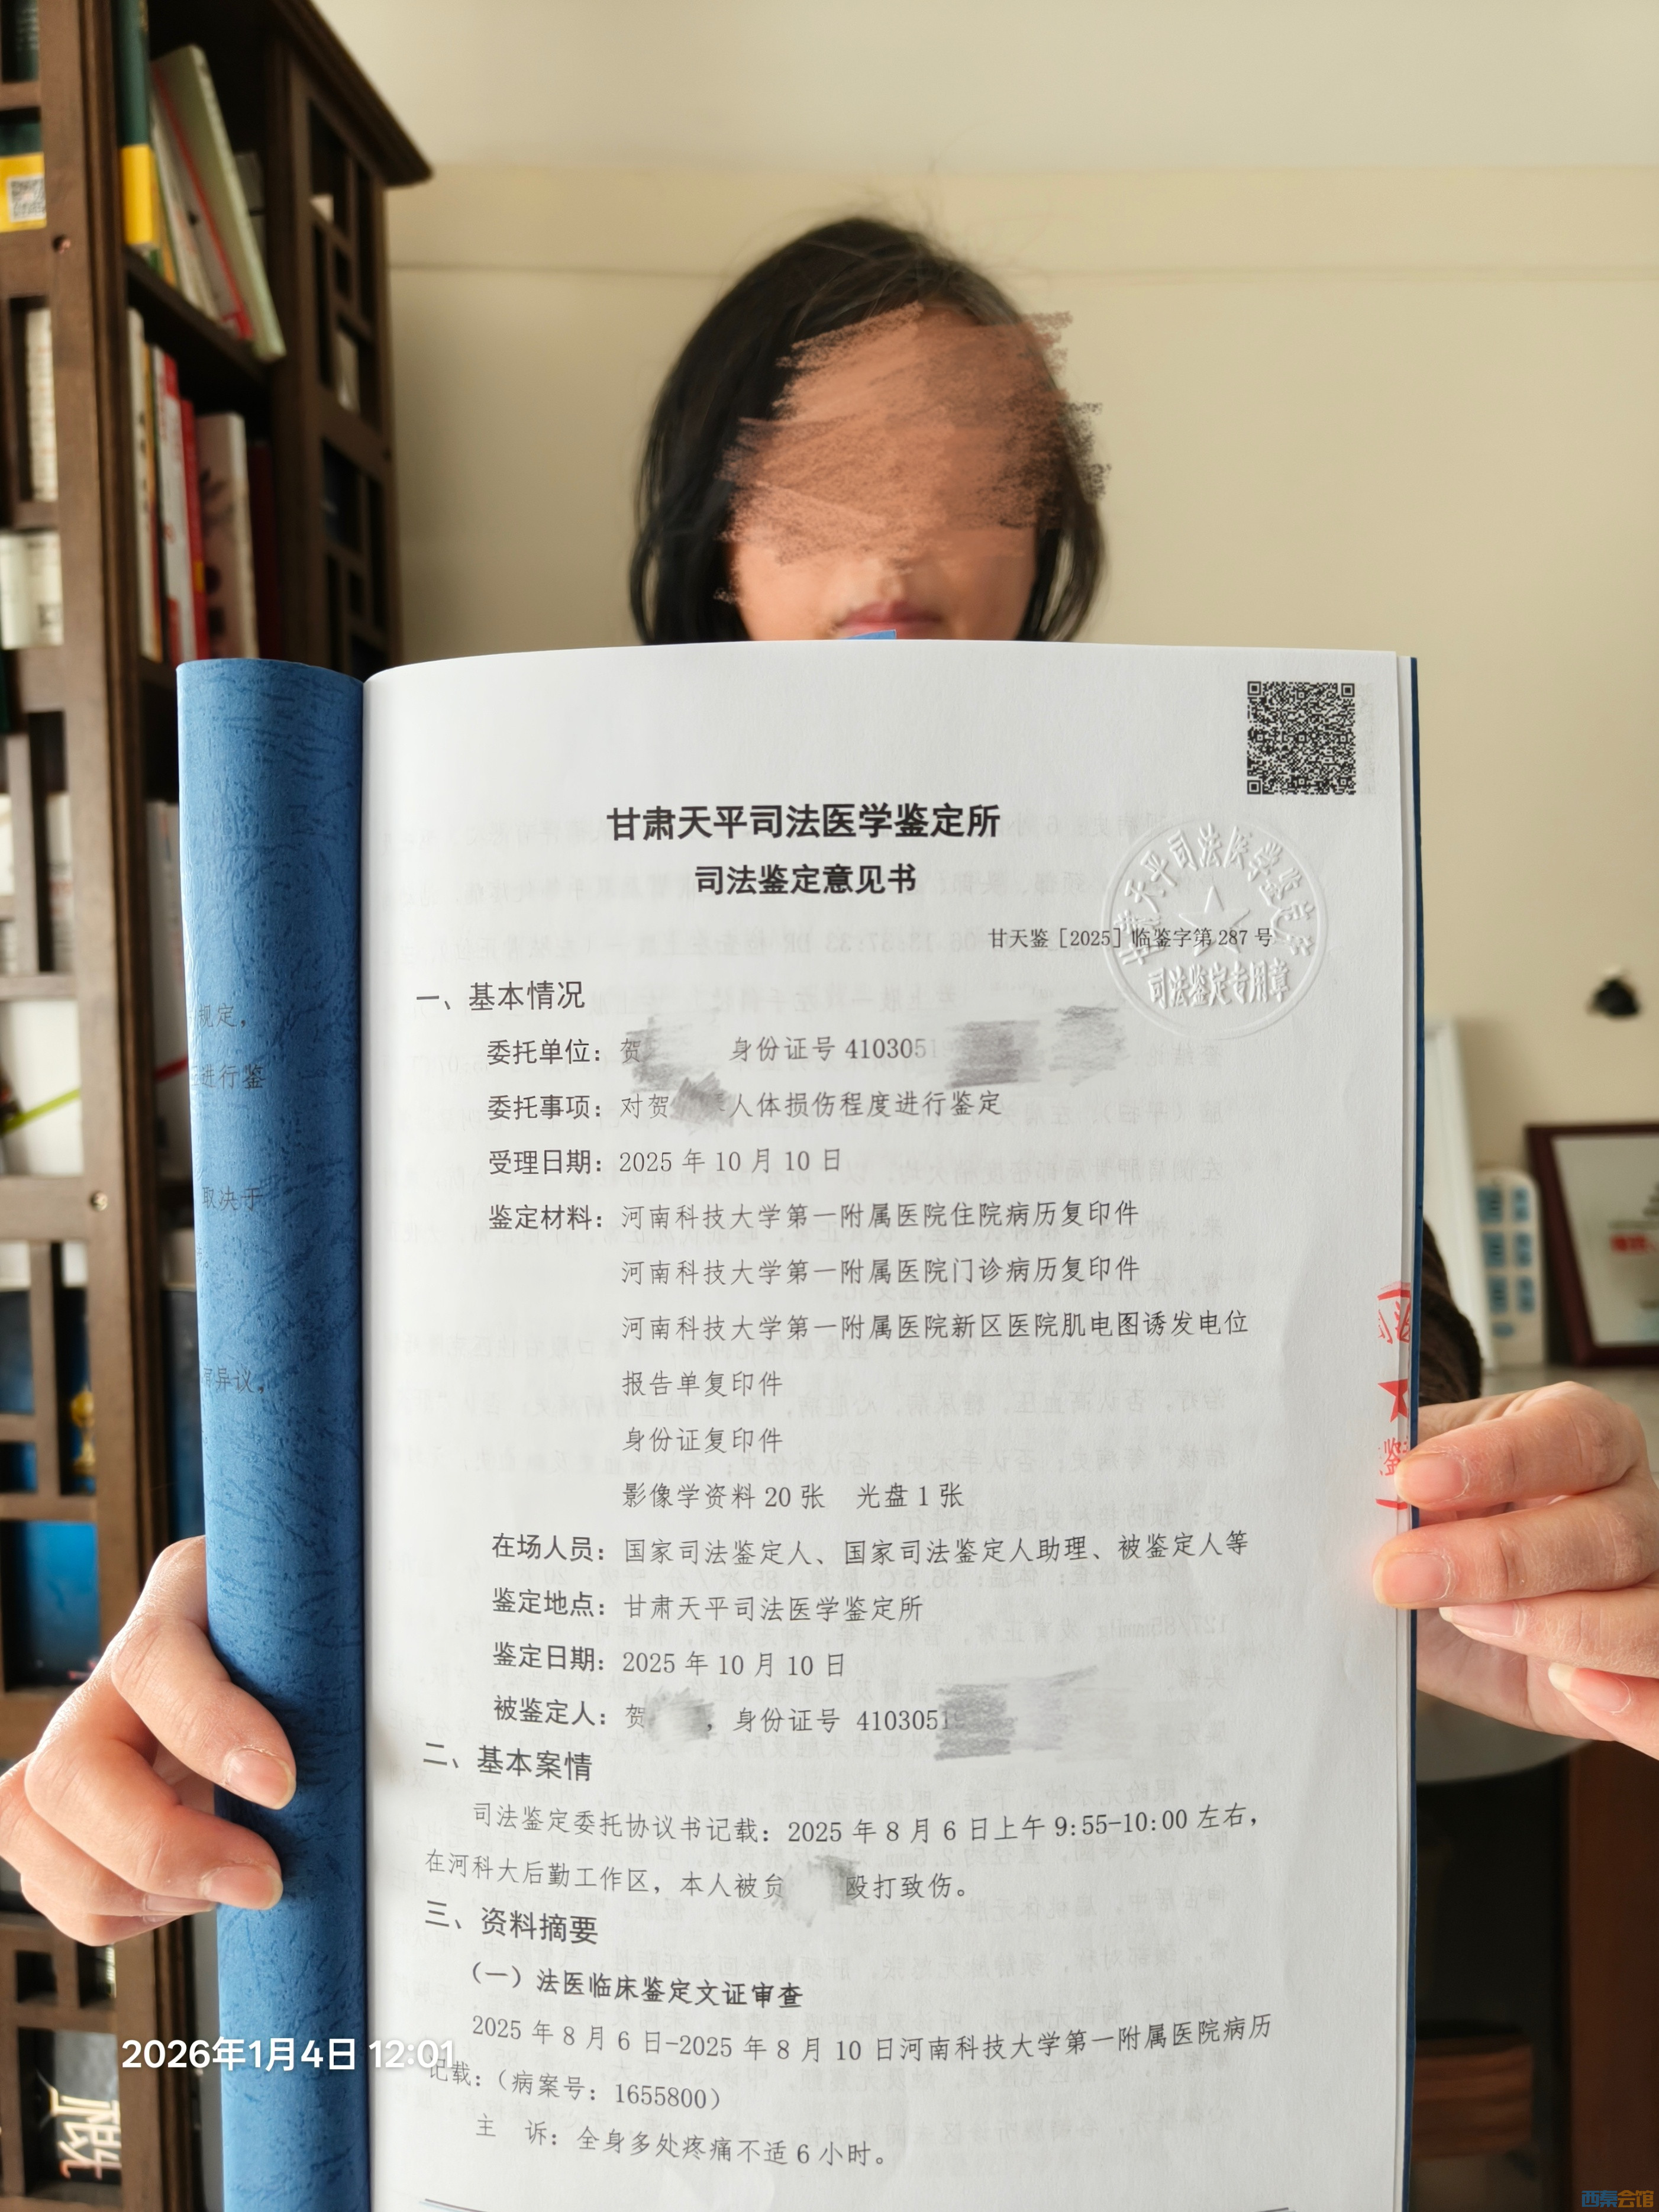 甘肃天平司法医学鉴定所
司法鉴定意见书
甘天鉴［2025］临鉴字第 287 号
天平司法医学鉴定
司法鉴定专用章
一、基本情况
委托单位：贺 身份证号 4103051
委托事项：对贺 人体损伤程度进行鉴定
受理日期：2025 年 10 月 10 日
鉴定材料：河南科技大学第一附属医院住院病历复印件
河南科技大学第一附属医院门诊病历复印件
河南科技大学第一附属医院新区医院肌电图诱发电位
报告单复印件
身份证复印件
影像学资料 20 张 光盘 1 张
在场人员：国家司法鉴定人、国家司法鉴定人助理、被鉴定人等
鉴定地点：甘肃天平司法医学鉴定所
鉴定日期：2025 年 10 月 10 日
被鉴定人：贺 ，身份证号 4103051
二、基本案情
司法鉴定委托协议书记载：2025 年 8 月 6 日上午 9:55-10:00 左右，
在河科大后勤工作区，本人被 殴打致伤。
三、资料摘要
（一）法医临床鉴定文证审查
2025 年 8 月 6 日-2025 年 8 月 10 日河南科技大学第一附属医院病历
记载：（病案号：1655800）
主 诉：全身多处疼痛不适 6 小时。
规定，
进行鉴
取决于
异议，
2026年1月4日 12:01
西秦会馆